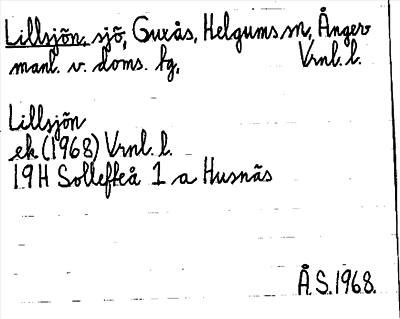 Lillsjön, sjö, Guxås, Helgums sn, Ånger
manl. v. doms. fg, Vrnl. l.
Lillsjön
ek (1968) Vrnl. l.
19H Sollefteå 1 a Husnäs
Å.S.1968.